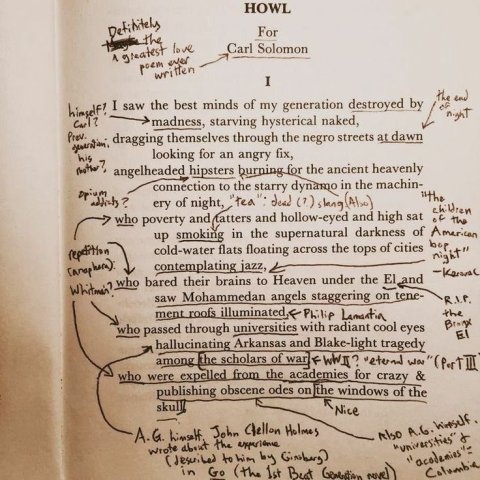 HOWL
Definitely
the
greatest love
poem ever
written
For
Carl Solomon
I
I saw the best minds of my generation destroyed by
madness, starving hysterical naked,
dragging themselves through the negro streets at dawn
looking for an angry fix,
angelheaded hipsters burning for the ancient heavenly
connection to the starry dynamo in the machin-
ery of night,
who poverty and tatters and hollow-eyed and high sat
up smoking in the supernatural darkness of
cold-water flats floating across the tops of cities
contemplating jazz,
who bared their brains to Heaven under the El and
saw Mohammedan angels staggering on tene-
ment roofs illuminated,
who passed through universities with radiant cool eyes
hallucinating Arkansas and Blake-light tragedy
among the scholars of war,
who were expelled from the academies for crazy &
publishing obscene odes on the windows of the
skull,
himself?
Carl?
Prev.
generation;
his
mother?
opium
addicts?
repetition
(anaphora):
Whitman?
the end
of
night
"tea": dead (?) slang (Also)
"the
children
of the
American
bop
night"
- Kerouac
R.I.P.
the
Bronx
El
Philip Lamantia
WWII? "eternal war" (Part III)
Nice
A.G. himself, John Clellon Holmes
wrote about the experience
(described to him by Ginsberg)
in Go (the 1st Beat Generation novel)
Also A.G. himself.
"universities" &
"academies" =
Columbia